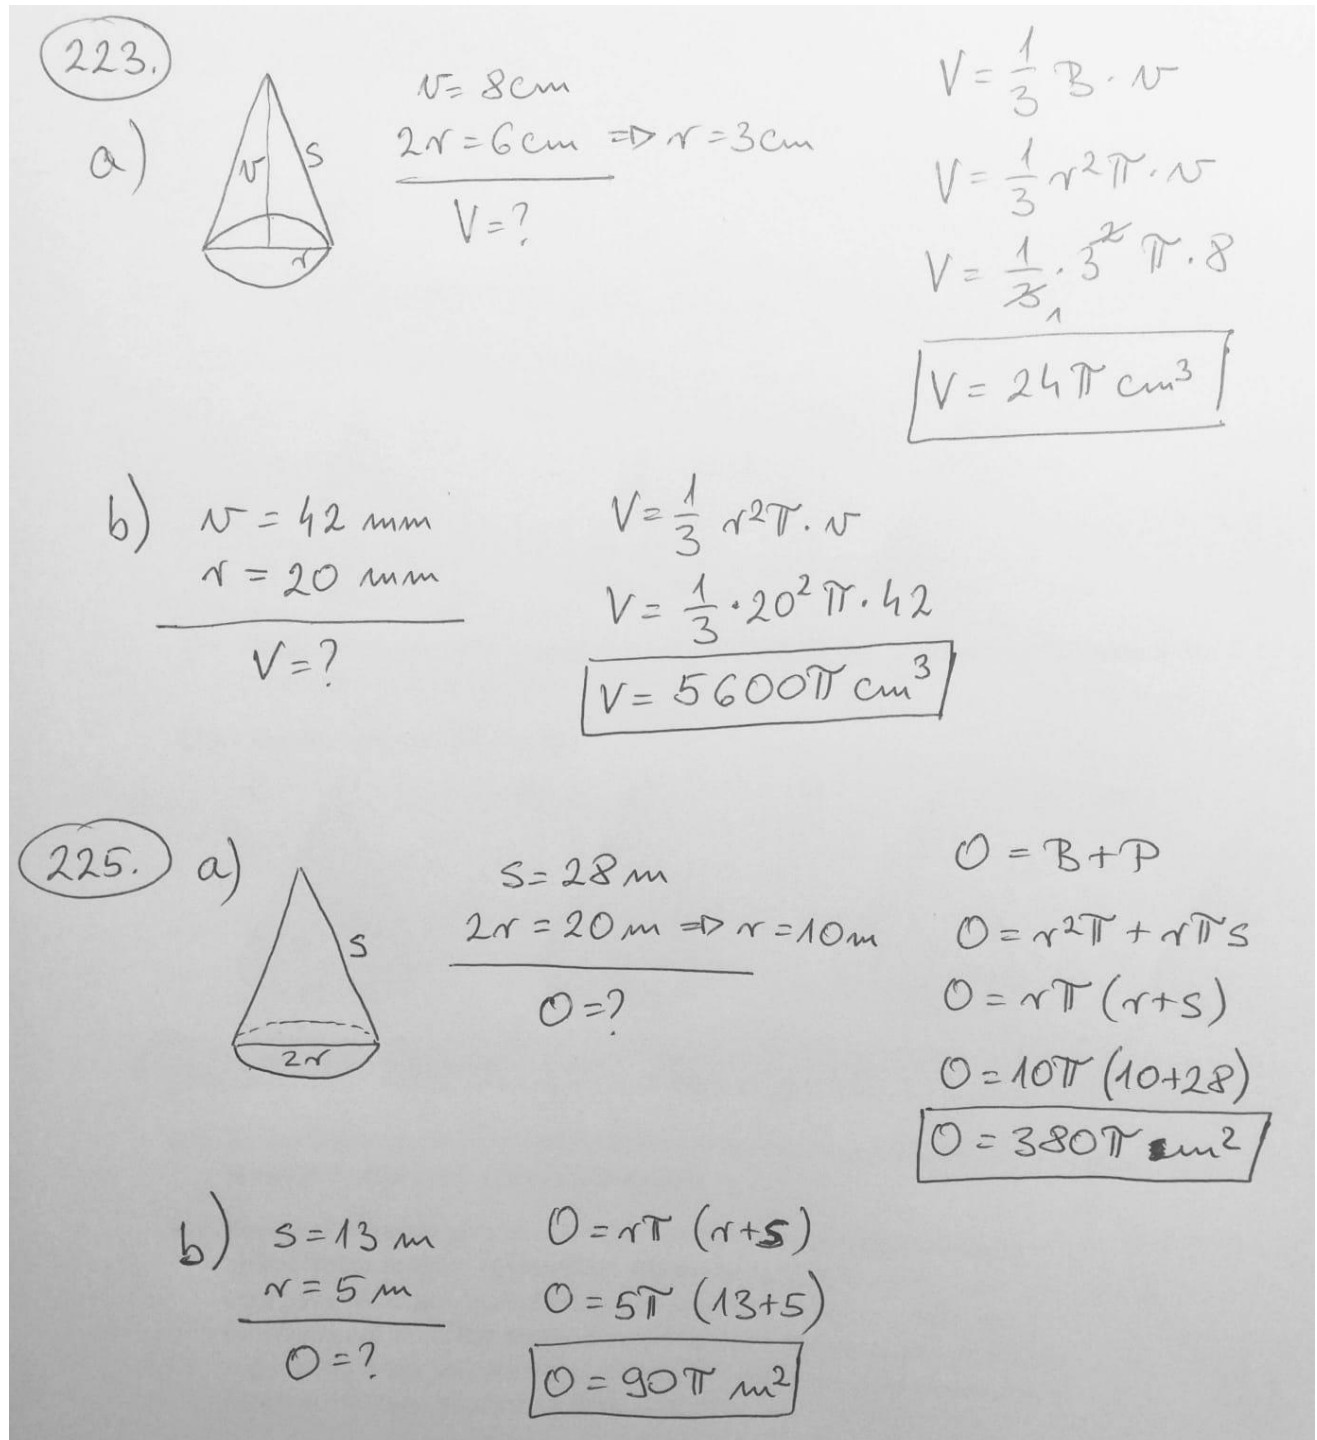 223.
a)
v
s
r
v = 8cm
2r = 6cm => r = 3cm
V = ?
V = 1/3 B · v
V = 1/3 r²π · v
V = 1/3 · 3² π · 8
1
V = 24π cm³
b)
v = 42 mm
r = 20 mm
V = ?
V = 1/3 r²π · v
V = 1/3 · 20² π · 42
V = 5600π cm³
225. a)
s
2r
s = 28 m
2r = 20 m => r = 10 m
O = ?
O = B + P
O = r²π + rπs
O = rπ (r+s)
O = 10π (10+28)
O = 380π m²
b)
s = 13 m
r = 5 m
O = ?
O = rπ (r+s)
O = 5π (13+5)
O = 90π m²